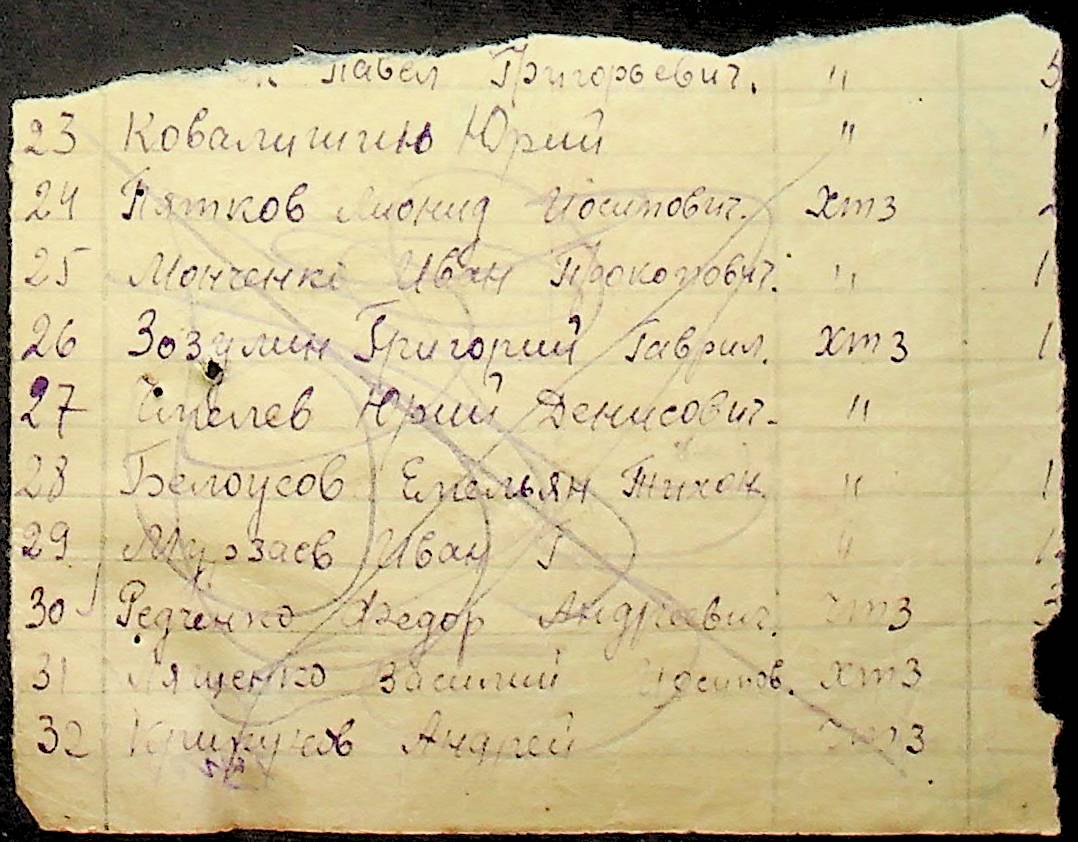 Павел Григорьевич. "
23 Ковалишин Юрий "
24 Пятков Лионид Иосипович. ХТЗ
25 Монченко Иван Прокопович. "
26 Зозулин Григорий Гаврил. ХТЗ
27 Юрий Денисович. "
28 Белоусов Емельян Тихон. "
29 Мурзаев Иван Г "
30 Редченко Федор Андреевич. ЧТЗ
31 Лященко Василий Иосипов. ХТЗ
32 Андрей